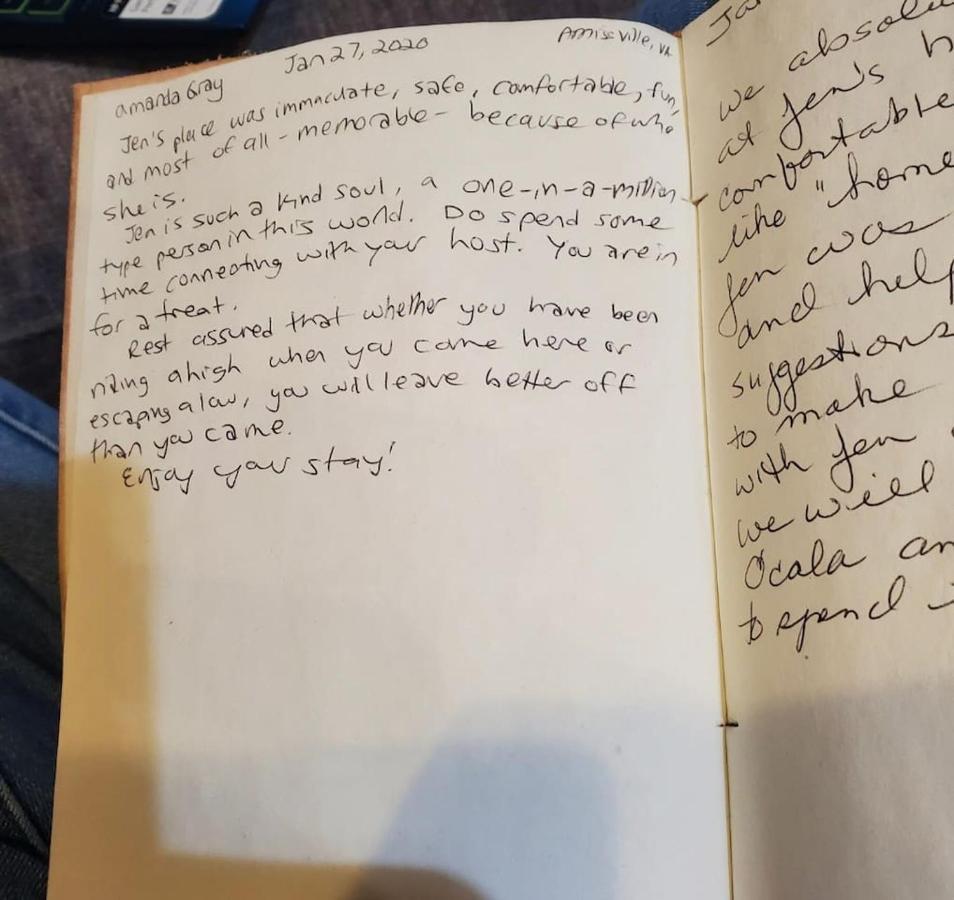 amanda Gray Jan 27, 2020 Amissville, VA
Jen's place was immaculate, safe, comfortable, fun,
and most of all - memorable - because of who
she is.
Jen is such a kind soul, a one-in-a-million
type person in this world. Do spend some
time connecting with your host. You are in
for a treat.
Rest assured that whether you have been
riding a high when you came here or
escaping a low, you will leave better off
than you came.
Enjoy your stay!
Ja
we absolu
at Jen's h
comfortable
like "home
Jen was
and help
suggestions
to make
with Jen
we will
Ocala an
to spend